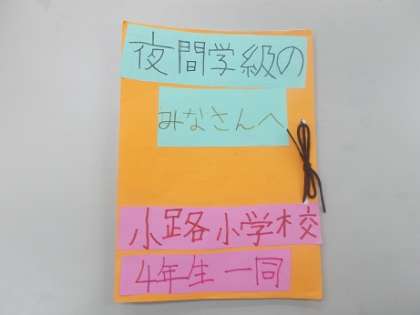 夜間学級の
みなさんへ
小路小学校
4年生一同